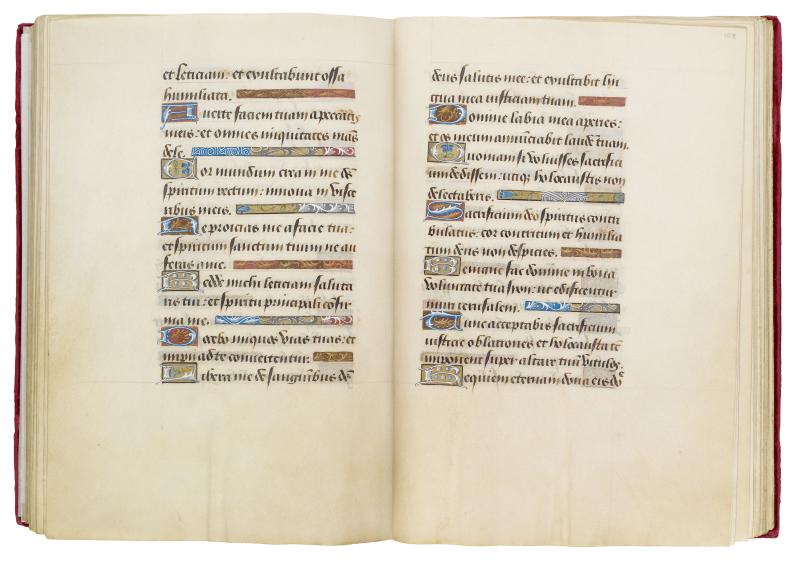 et leticiam: et exultabunt ossa
humiliata.
Averte faciem tuam a peccatis
meis: et omnes iniquitates meas
dele.
Cor mundum crea in me de
spiritum rectum: innova in visce
ribus meis.
Ne proicias me a facie tua:
et spiritum sanctum tuum ne au
feras a me.
Redde michi leticiam saluta
ris tui: et spiritu principali confir
ma me.
Docebo iniquos vias tuas: et
impii ad te convertentur.
Libera me de sanguinibus de
deus salutis mee: et exultabit lin
gua mea iusticiam tuam.
Domine labia mea aperies:
et os meum annuntiabit laude tuam.
Quoniam si voluisses sacrifici
um dedissem: utique holocaustis non
delectaberis.
Sacrificium deo spiritus contri
bulatus: cor contritum et humilia
tum deus non despicies.
Benigne fac domine in bona
voluntate tua syon: ut edificentur
muri ierusalem.
Tunc acceptabis sacrificium
iusticie oblationes et holocausta te
imponent super altare tuu vitulos.
Requiem eternam dona eis do